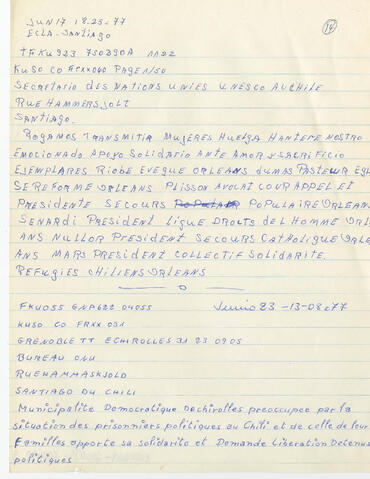 JUN 17 18.25-77
14
ECLA-SANTIAGO
TFKU923 750290A 1122
KUSO CO FRXX040 PAGE1/50
SECRETARIO DES NATIONS UNIES UNESCO AUCHILE
RUE HAMMERSJOLT
SANTIAGO.
ROGAMOS TRANSMITIR MUJERES HUELGA HANTERE NOSTRO
EMOCIONADO APOYO SOLIDARIO ANTE AMOR Y SACRIFICIO
EJEMPLARES RIOBE EVEQUE ORLEANS DUMAS PASTEUR EGL
SE REFORME ORLEANS PLISSON AVOCAT COUR APPEL ET
PRESIDENTE SECOURS POPULAIRE ORLEAN
SENARDI PRESIDENT LIGUE DROITS DEL HOMME ORL
ANS NULLOR PRESIDENT SECOURS CATHOLIQUE ORLE
ANS MARS PRESIDENT COLLECTIF SOLIDARITE.
REFUGIES CHILIENS ORLEANS
FKUOSS GNP622 04055
Junio 23 -13-08 c77
KUSO CO FRXX 031
GRENOBLE TT ECHIROLLES 31 23 0905
BUREAU ONU
RUEHAMMASKJOLD
SANTIAGO DU CHILI
Municipalite Democratique Dechirolles preoccupee par la
situation des prisonniers politiques au Chili et de celle de leur
Familles apporte sa solidarite et Demande Liberation Detenus
politiques